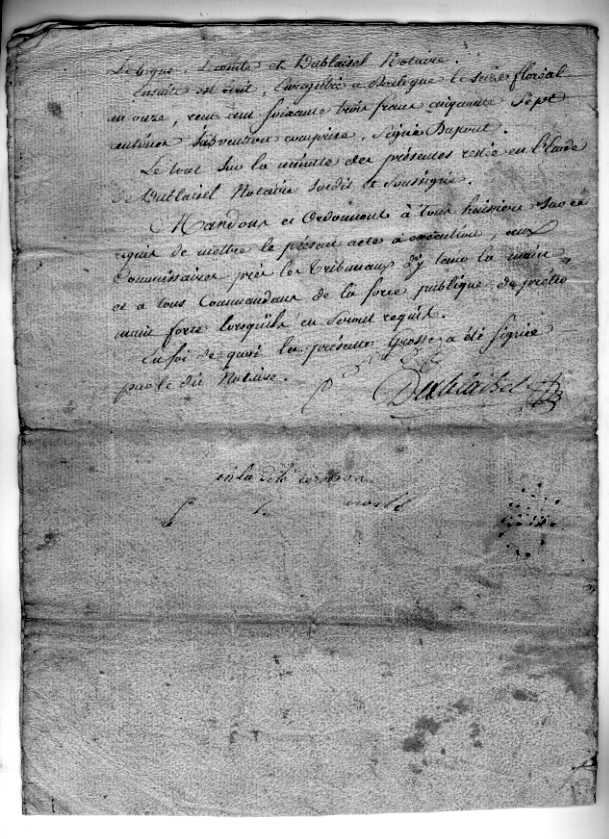 Lecomte et Dublaisel Notaire.
Ensuite est écrit, Enregistré a le seize floréal
an onze, recu cent soixante trois francs cinquante Sept
centimes Subvention comprise, Signé Dupont.
Le tout Sur la minute des présentes restée en l'Etude
de Dublaisel Notaire susdit et Soussigné.
Mandons et Ordonnons à tous huissiers sur ce
requis de mettre le présent acte à exécution, aux
Commissaires près les Tribunaux d'y tenir la main
et a tous Commandans de la force publique de prêter
main forte lorsqu'ils en Seront requis.
En foi de quoi la présente Grosse a été Signée
par le dit Notaire.
Dublaisel
en la dite